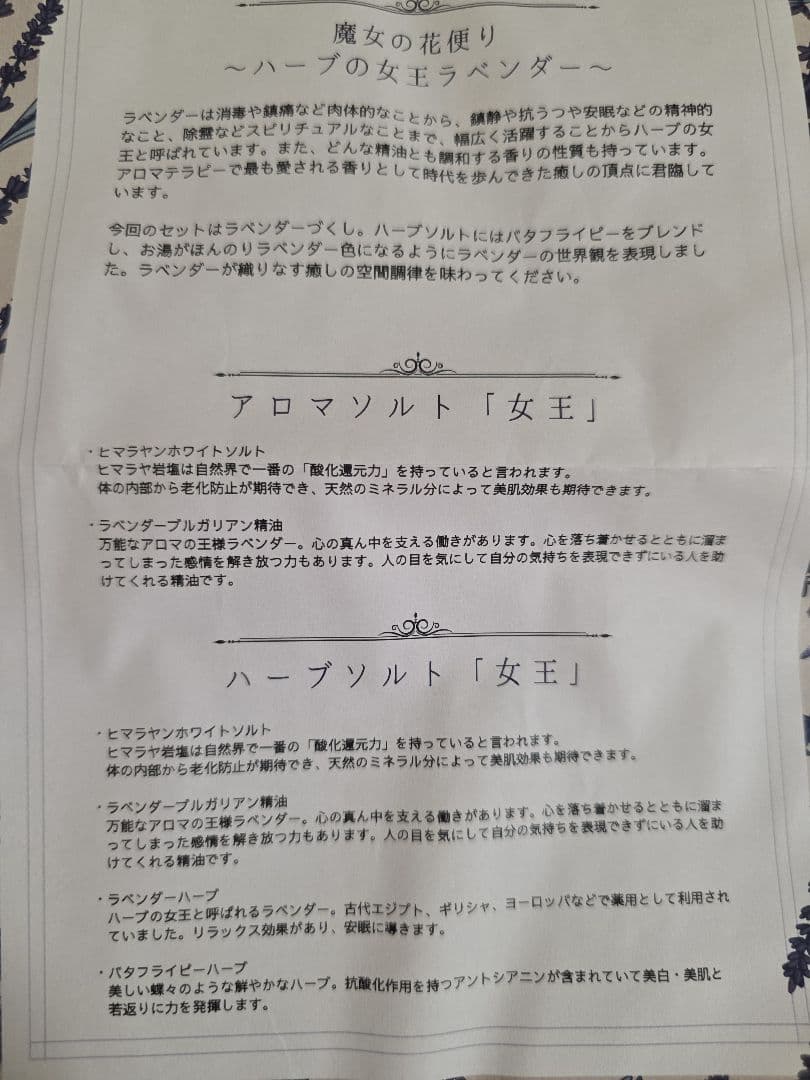 魔女の花便り
～ハーブの女王ラベンダー～
ラベンダーは消毒や鎮痛など肉体的なことから、鎮静や抗うつや安眠などの精神的
なこと、除霊などスピリチュアルなことまで、幅広く活躍することからハーブの女
王と呼ばれています。また、どんな精油とも調和する香りの性質も持っています。
アロマテラピーで最も愛される香りとして時代を歩んできた癒しの頂点に君臨して
います。
今回のセットはラベンダーづくし。ハーブソルトにはバタフライピーをブレンド
し、お湯がほんのりラベンダー色になるようにラベンダーの世界観を表現しまし
た。ラベンダーが織りなす癒しの空間調律を味わってください。
アロマソルト「女王」
・ヒマラヤンホワイトソルト
ヒマラヤ岩塩は自然界で一番の「酸化還元力」を持っていると言われます。
体の内部から老化防止が期待でき、天然のミネラル分によって美肌効果も期待できます。
・ラベンダーブルガリアン精油
万能なアロマの王様ラベンダー。心の真ん中を支える働きがあります。心を落ち着かせるとともに溜ま
ってしまった感情を解き放つ力もあります。人の目を気にして自分の気持ちを表現できずにいる人を助
けてくれる精油です。
ハーブソルト「女王」
・ヒマラヤンホワイトソルト
ヒマラヤ岩塩は自然界で一番の「酸化還元力」を持っていると言われます。
体の内部から老化防止が期待でき、天然のミネラル分によって美肌効果も期待できます。
・ラベンダーブルガリアン精油
万能なアロマの王様ラベンダー。心の真ん中を支える働きがあります。心を落ち着かせるとともに溜ま
ってしまった感情を解き放つ力もあります。人の目を気にして自分の気持ちを表現できずにいる人を助
けてくれる精油です。
・ラベンダーハーブ
ハーブの女王と呼ばれるラベンダー。古代エジプト、ギリシャ、ヨーロッパなどで薬用として利用され
ていました。リラックス効果があり、安眠に導きます。
・バタフライピーハーブ
美しい蝶々のような鮮やかなハーブ。抗酸化作用を持つアントシアニンが含まれていて美白・美肌と
若返りに力を発揮します。